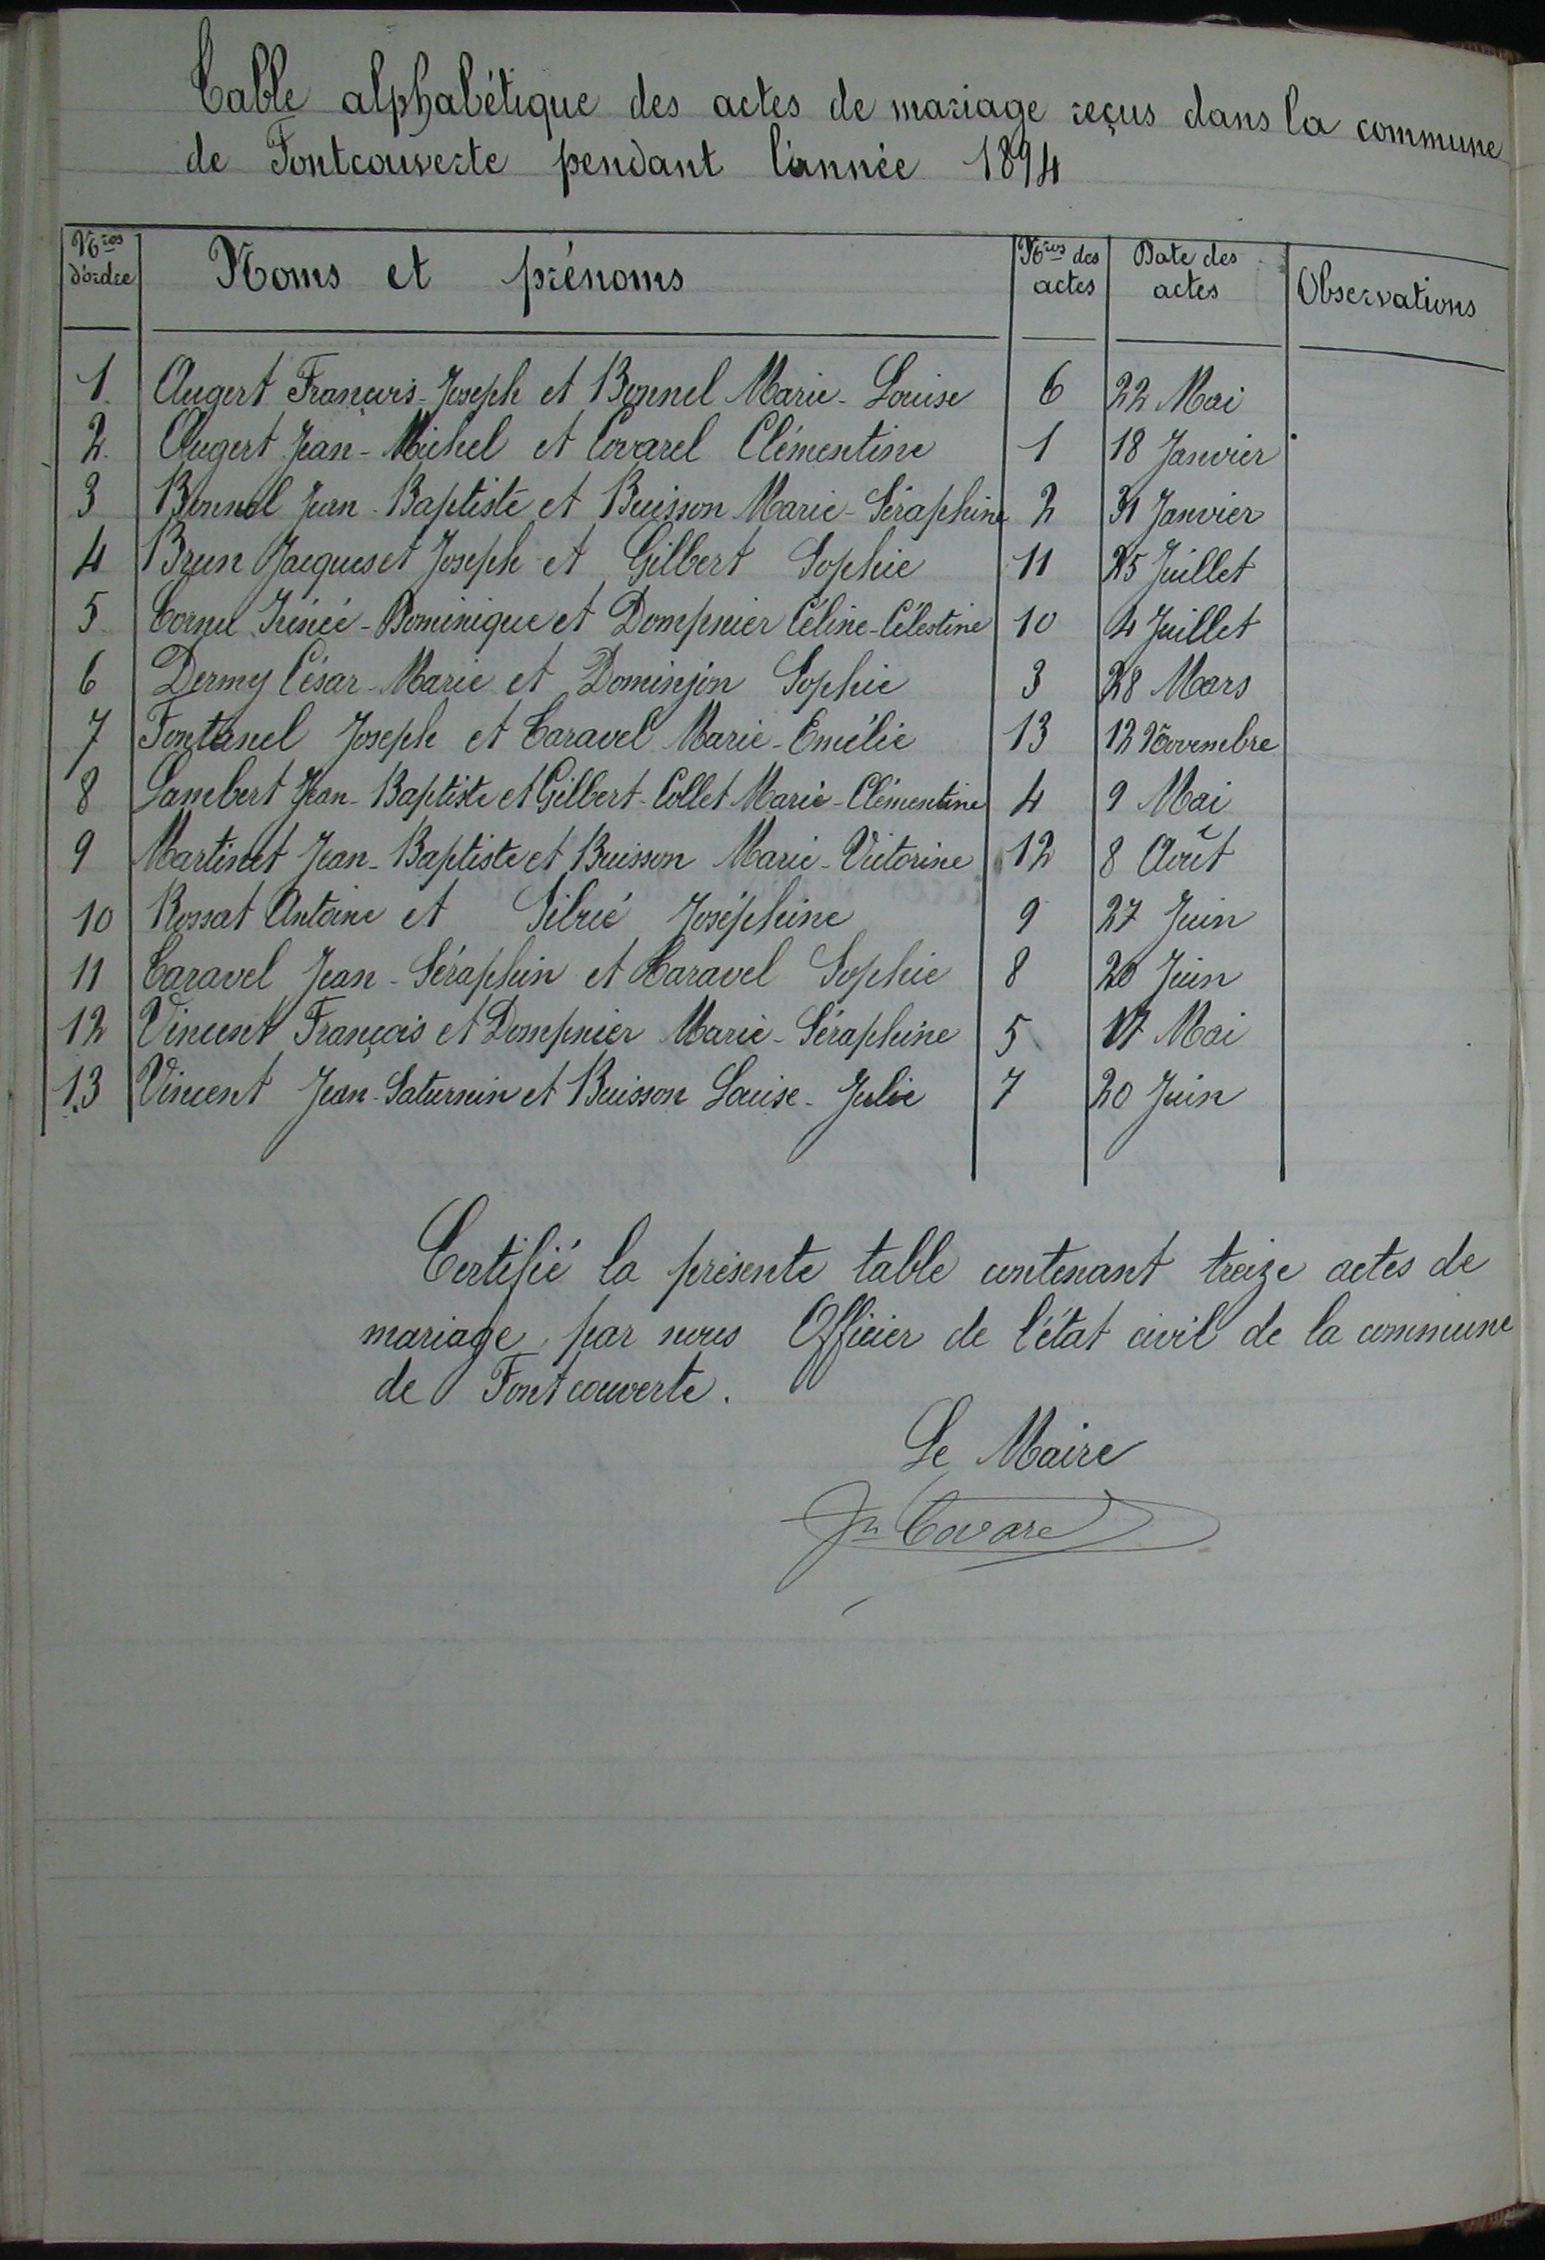 Table alphabétique des actes de mariage reçus dans la commune
de Fontcouverte pendant l'année 1894
Nros d'ordre Noms et prénoms Nros des actes Date des actes Observations
1. Augert François-Joseph et Bonnel Marie-Louise 6 22 Mai
2. Augert Jean-Michel et Covarel Clémentine 1 18 Janvier
3 Bonnel Jean-Baptiste et Buisson Marie-Séraphine 2 31 Janvier
4 Brun Jacques et Joseph et Gilbert Sophie 11 25 Juillet
5 Cornu Irénée-Dominique et Dompnier Céline-Célestine 10 4 Juillet
6 Dermy César-Marie et Dominjon Sophie 3 28 Mars
7 Fontanel Joseph et Taravel Marie-Emélie 13 12 Novembre
8 Lambert Jean-Baptiste et Gilbert-Collet Marie-Clémentine 4 9 Mai
9 Martinet Jean-Baptiste et Buisson Marie-Victorine 12 8 Août
10 Rossat Antoine et Sibué Joséphine 9 27 Juin
11 Taravel Jean-Séraphin et Taravel Sophie 8 20 Juin
12 Vincent François et Dompnier Marie-Séraphine 5 17 Mai
13 Vincent Jean-Saturnin et Buisson Louise-Julie 7 20 Juin
Certifié la présente table contenant treize actes de
mariage, par nous Officier de l'état civil de la commune
de Fontcouverte.
Le Maire
Jn Covarel